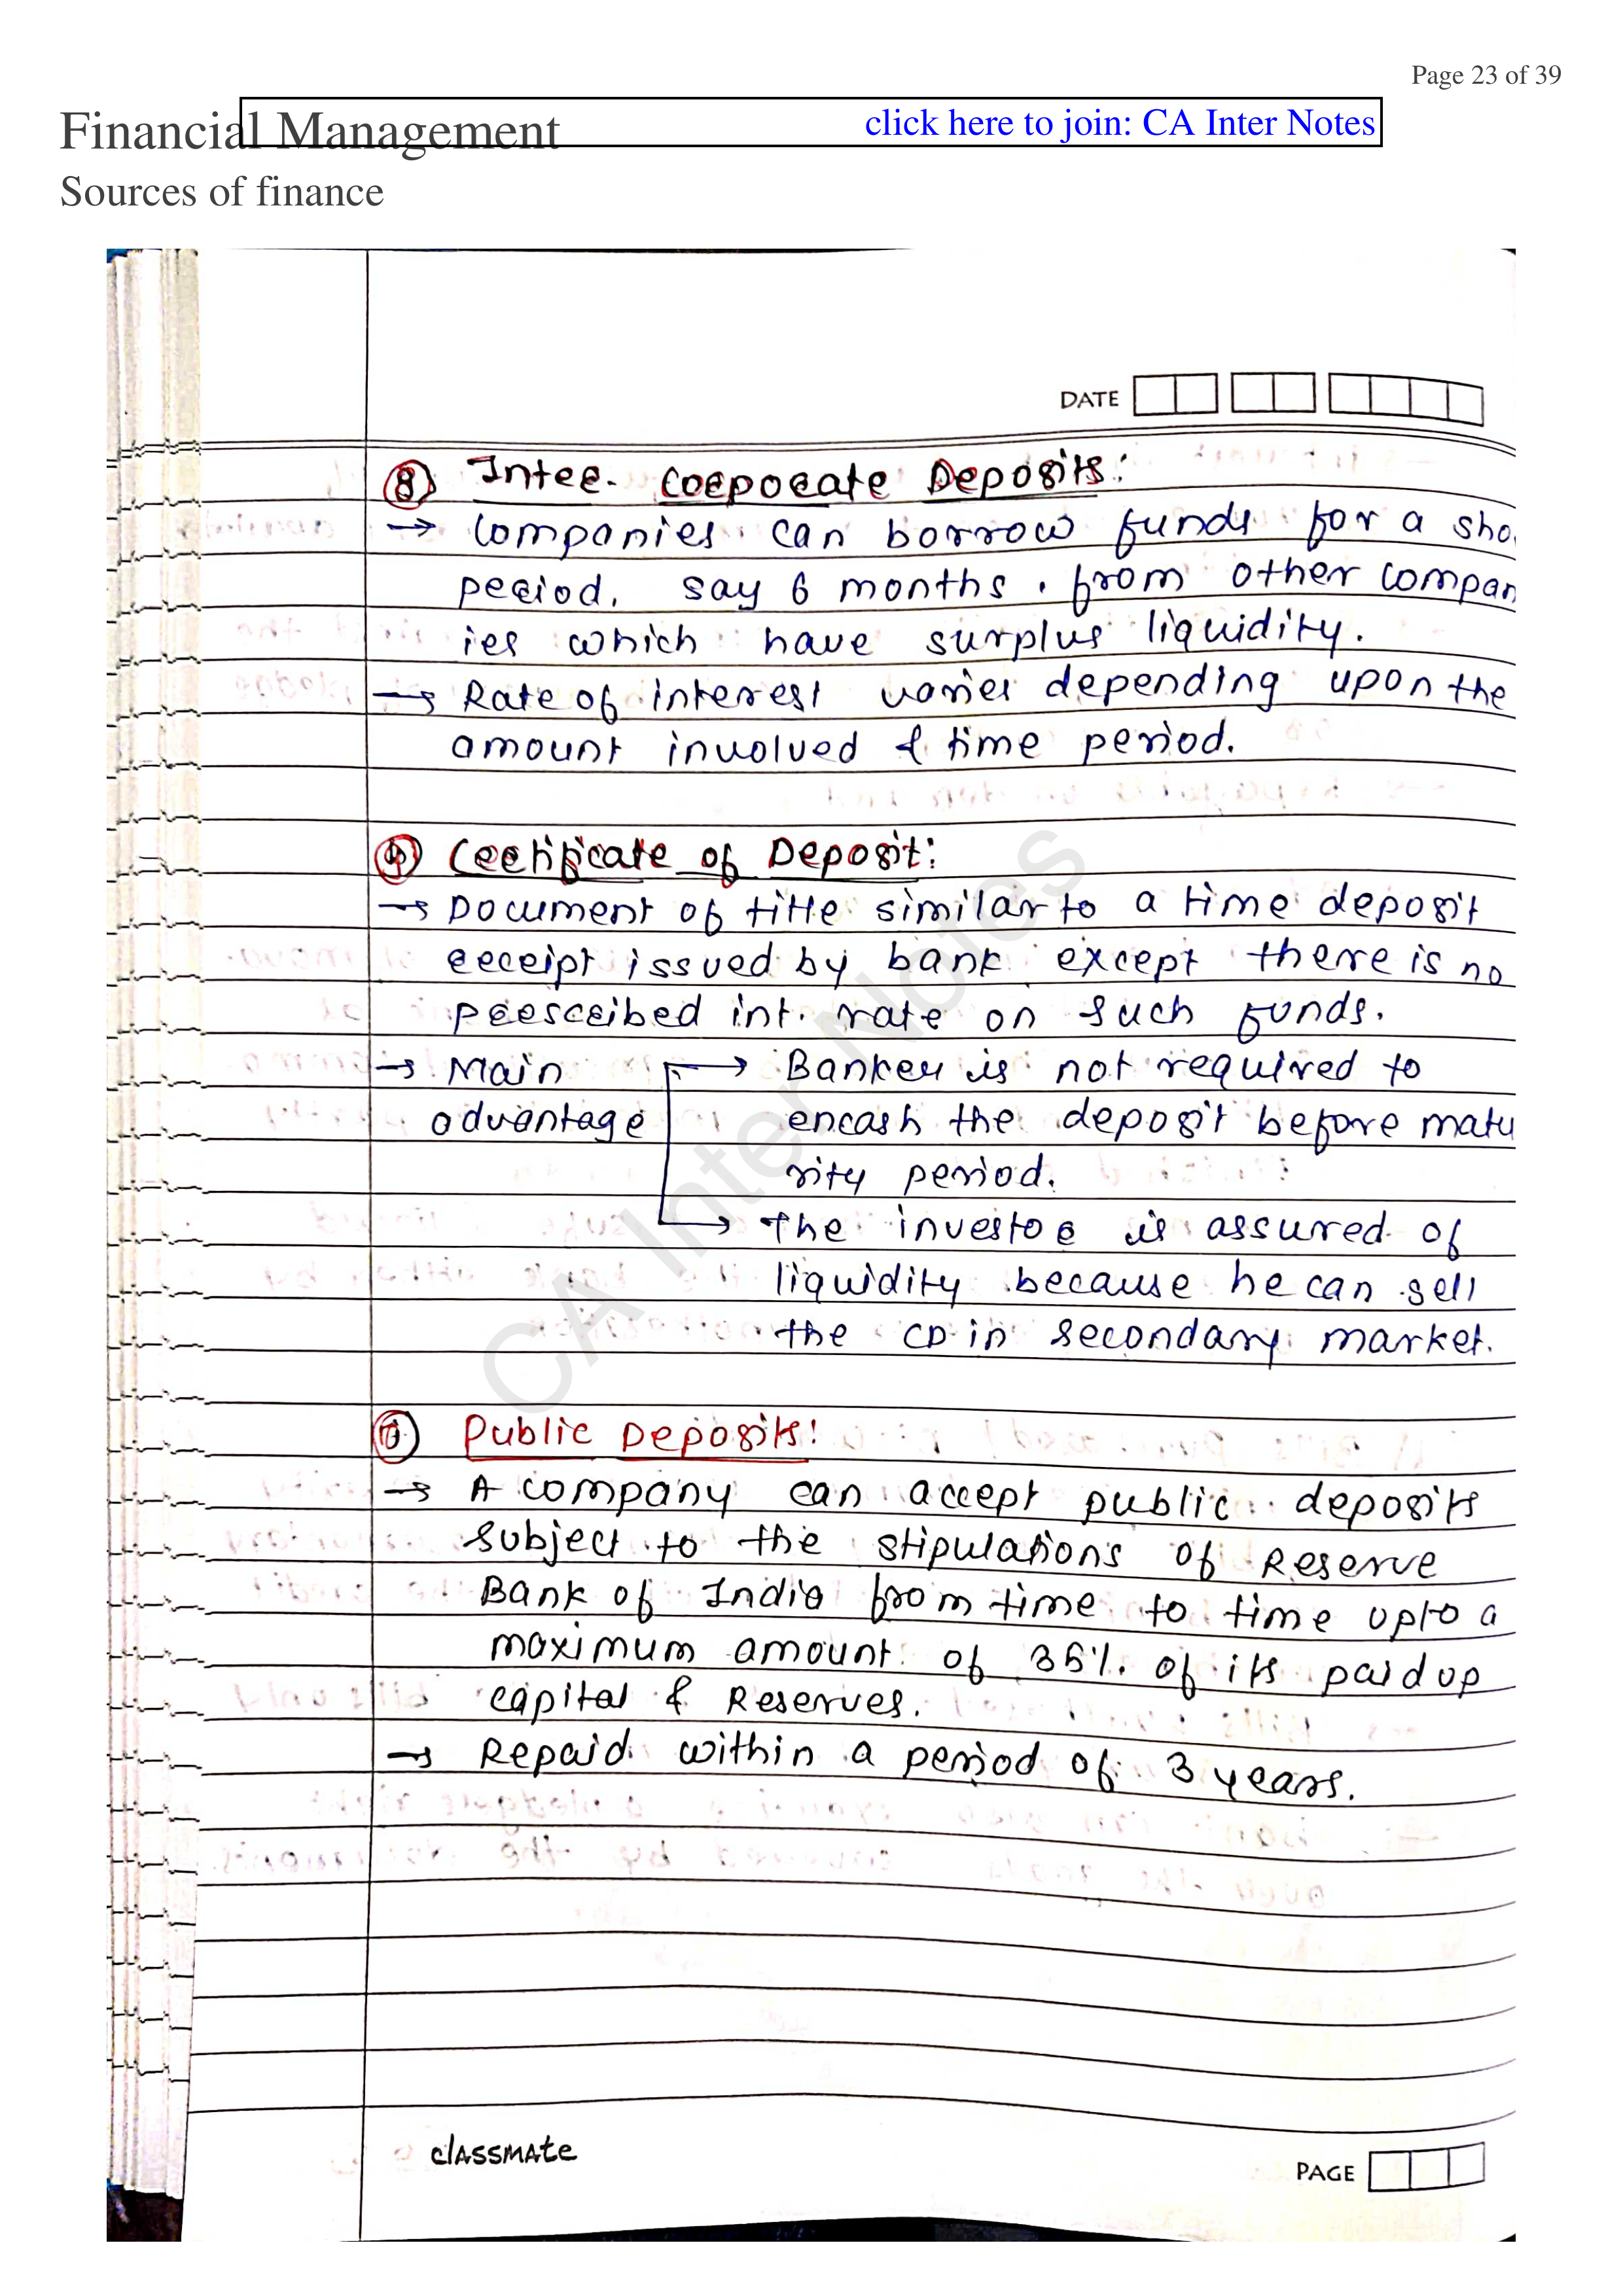 Page 23 of 39
Financial Management
click here to join: CA Inter Notes
Sources of finance
DATE
⑧ Inter. Corporate Deposits:
→ Companies can borrow funds for a sho
period. say 6 months. from other compan
ies which have surplus liquidity.
→ Rate of interest varies depending upon the
amount involved & time period.
⑨ Certificate of Deposit:
→ Document of title similar to a time deposit
receipt issued by bank except there is no
prescribed int. rate on such funds.
→ Main → Banker is not required to
advantage encash the deposit before matu
rity period.
→ The investor is assured of
liquidity because he can sell
the CD in secondary market.
⑩ Public Deposits:
→ A company can accept public deposits
subject to the stipulations of Reserve
Bank of India from time to time upto a
maximum amount of 35% of its paid up
capital & Reserves.
→ Repaid within a period of 3 years.
CA Inter Notes
classmate
PAGE